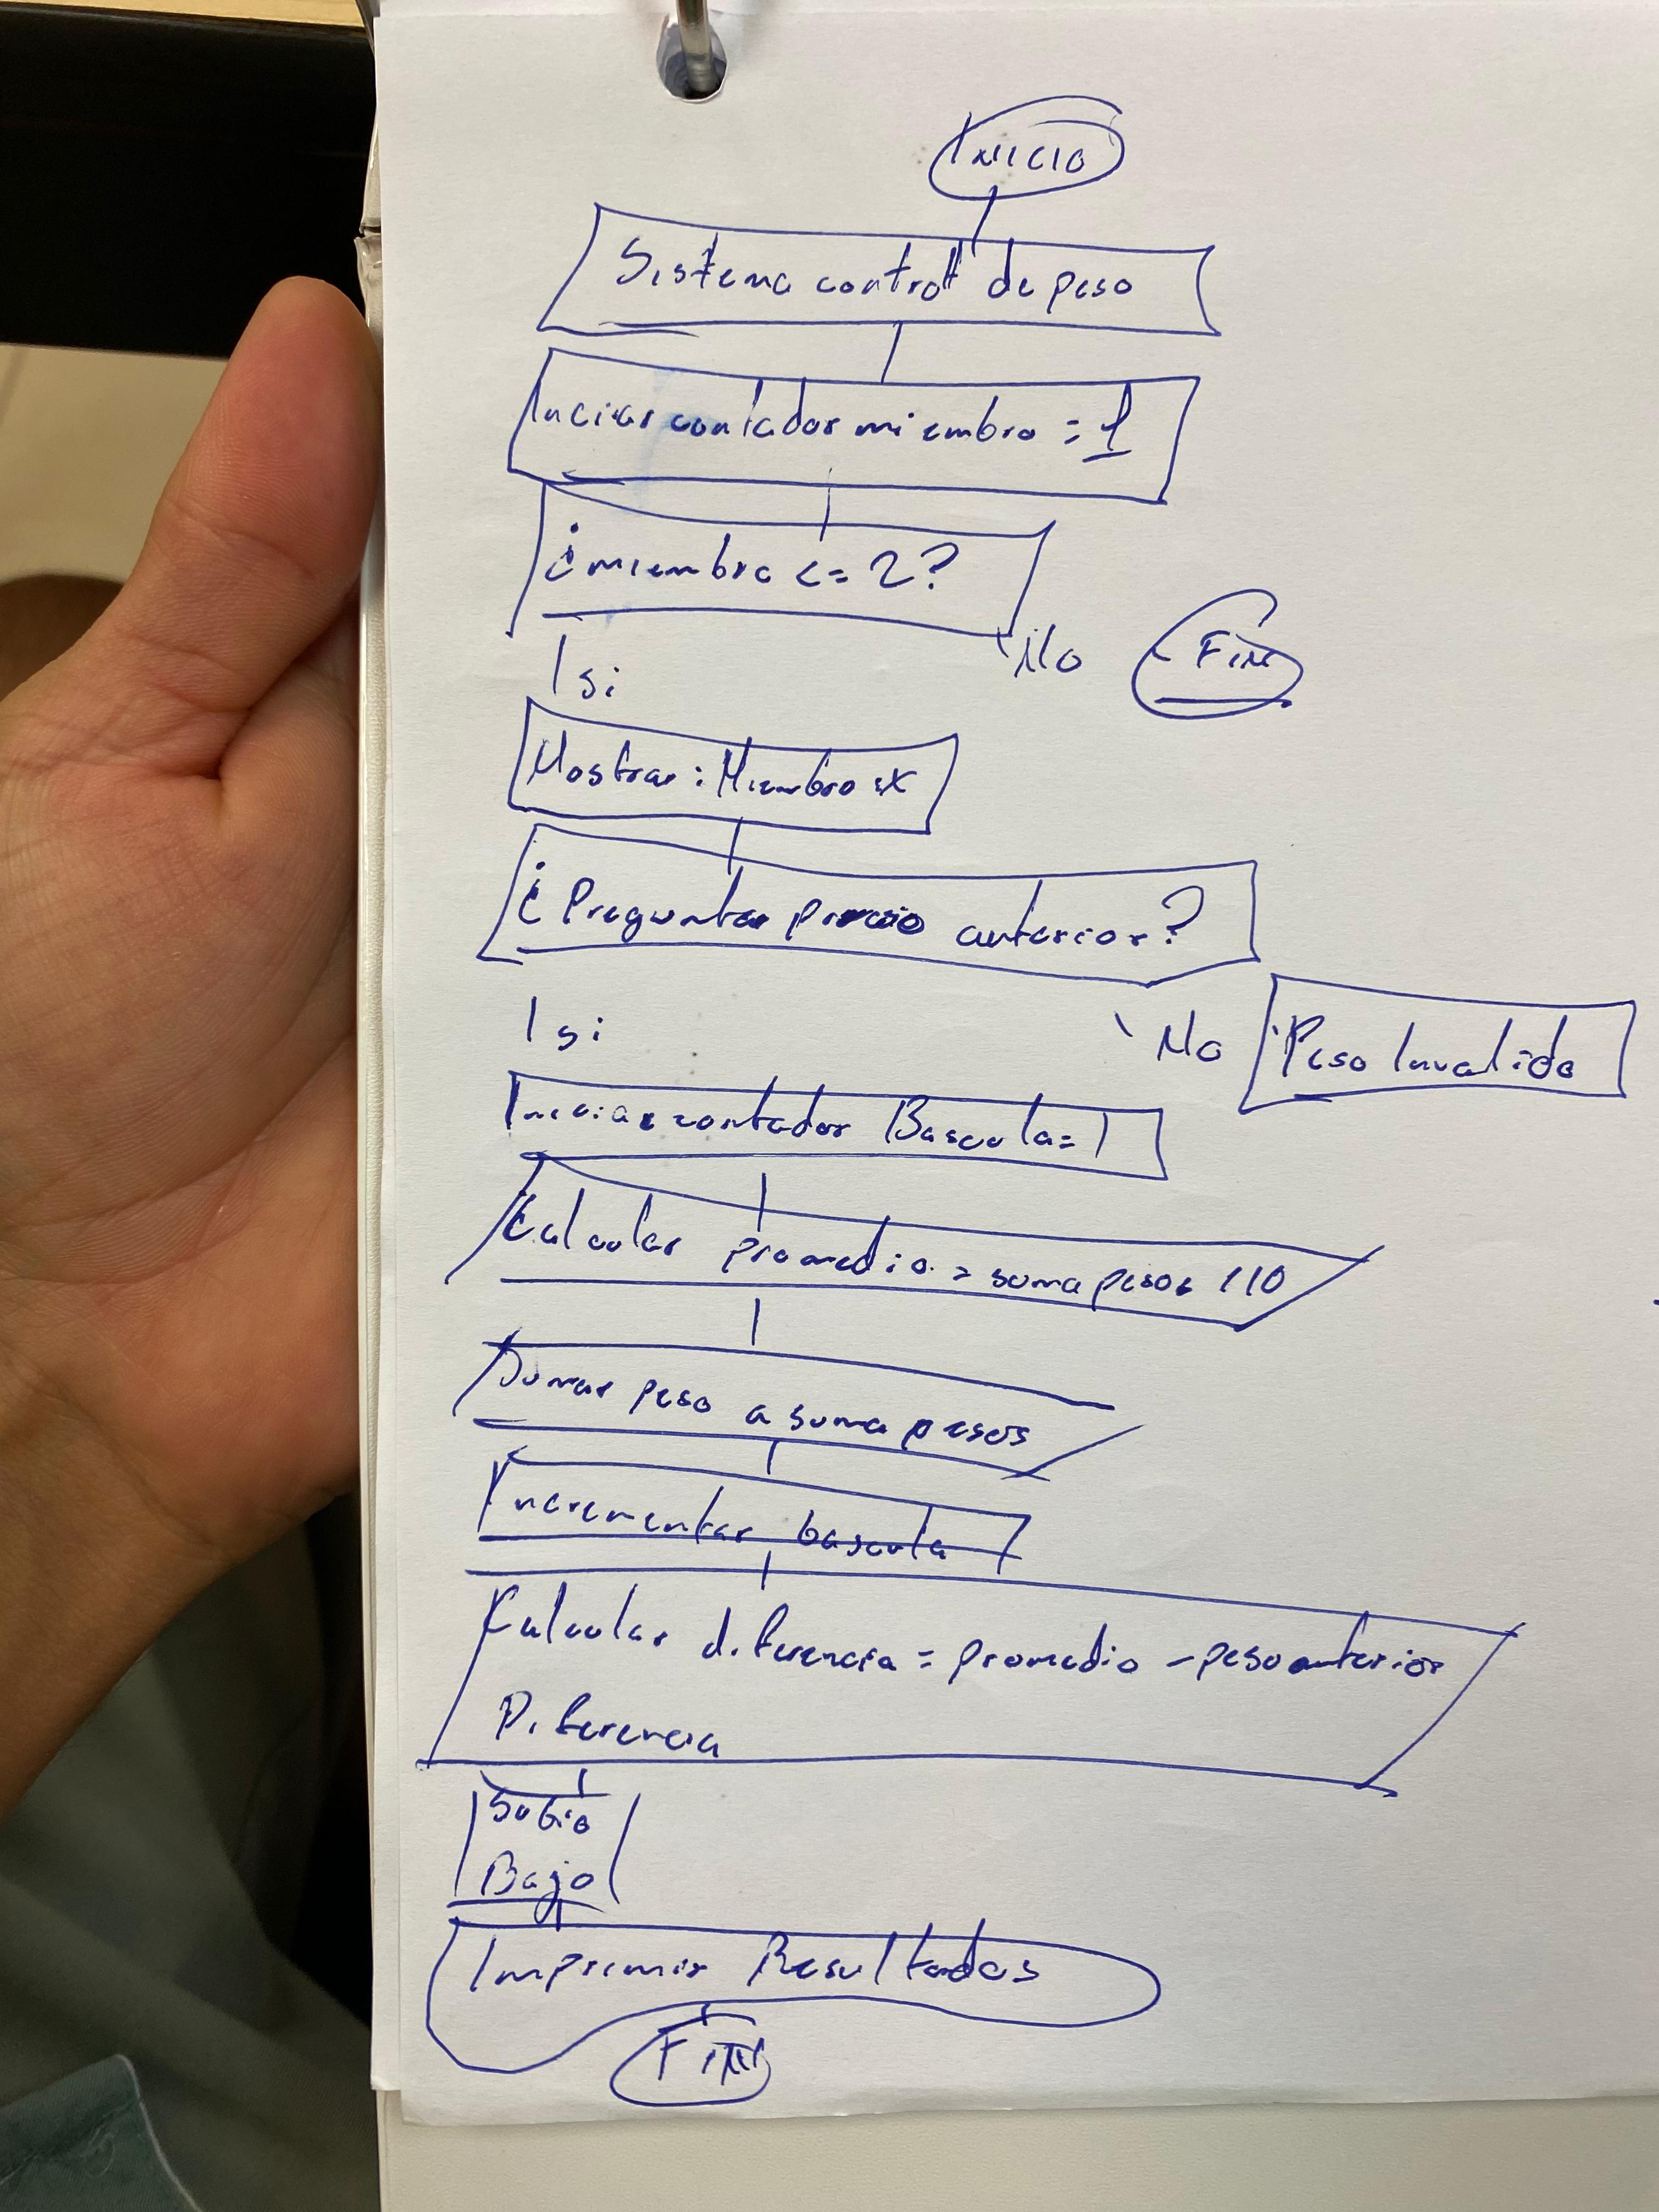 Inicio
Sistema control de peso
Iniciar contador miembro = 1
¿miembro <= 2?
No
Fin
si
Mostrar: Miembro
¿Preguntar anterior?
si
No
Peso Invalido
Iniciar contador Bascula = 1
Calcular promedio = suma pesos /10
Sumar peso a suma pesos
Incrementar bascula
Calcular diferencia = promedio - peso anterior
Diferencia
Subio
Bajo
Imprimir Resultados
Fin